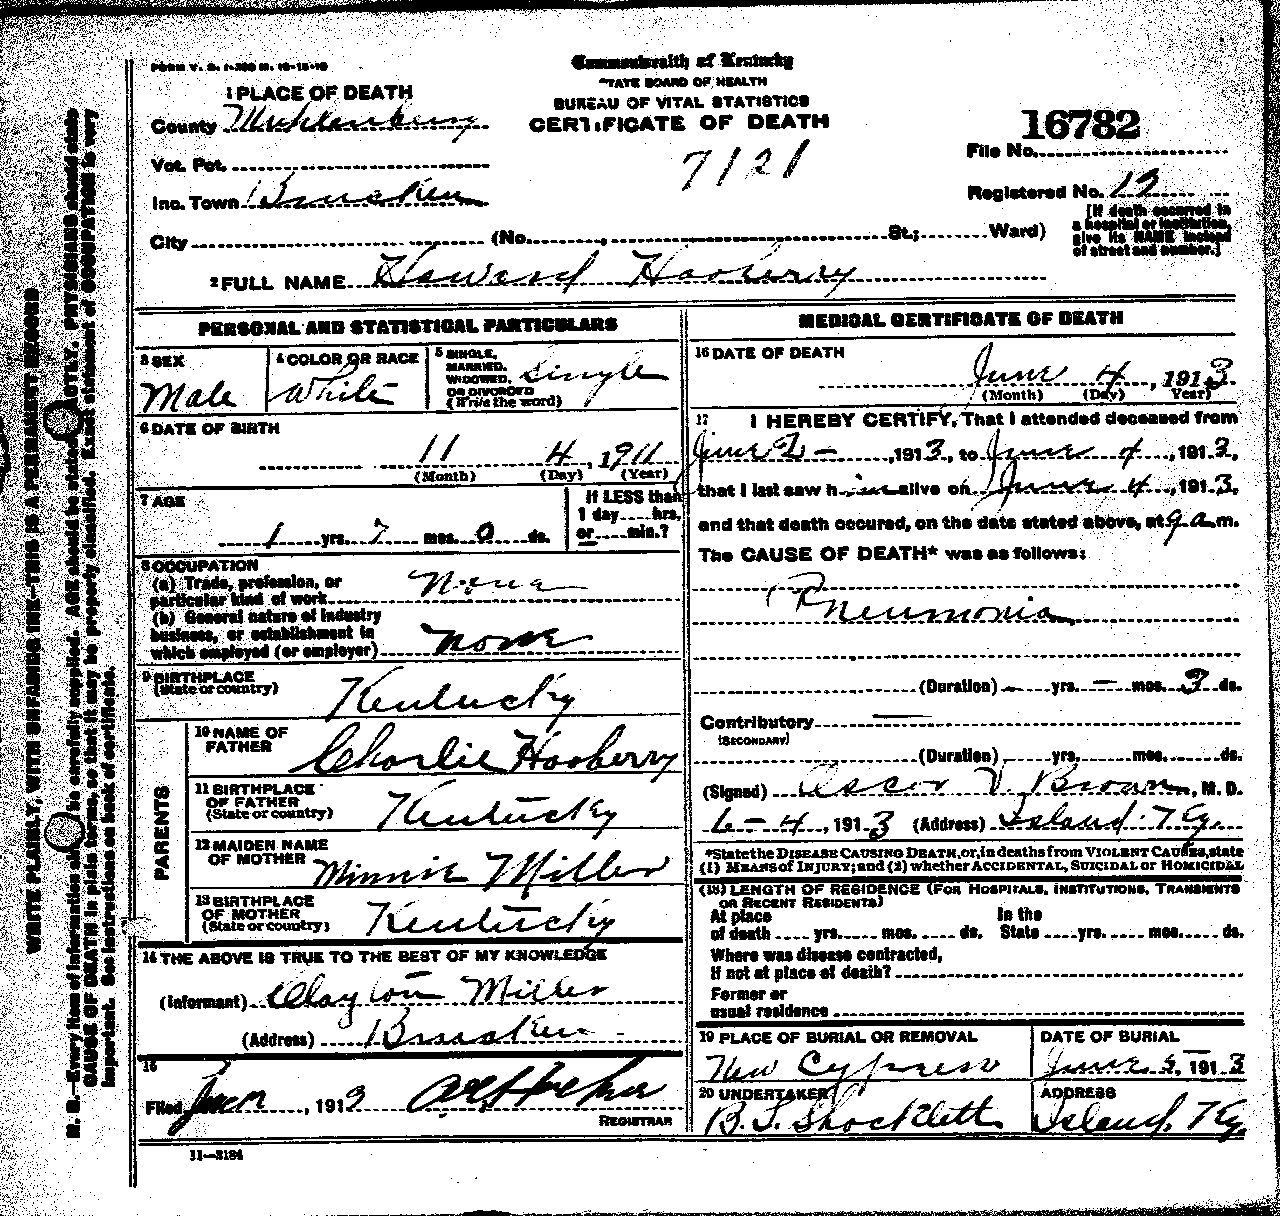 FORM V. S. 1-
Commonwealth of Kentucky
STATE BOARD OF HEALTH
BUREAU OF VITAL STATISTICS
CERTIFICATE OF DEATH
7121
16782
File No.
Registered No. 13
[If death occurred in
a hospital or institution,
give its NAME instead
of street and number.]
1 PLACE OF DEATH
County Muhlenburg
Vot. Pct.
Inc. Town
City (No. , St.; Ward)
2 FULL NAME Howard Hooberry
PERSONAL AND STATISTICAL PARTICULARS
3 SEX
Male
4 COLOR OR RACE
White
5 SINGLE,
MARRIED,
WIDOWED,
OR DIVORCED
(Write the word)
Single
6 DATE OF BIRTH
11 4, 1911
(Month) (Day) (Year)
7 AGE
1 yrs. 7 mos. 0 ds.
If LESS than
1 day hrs.
or min.?
8 OCCUPATION
(a) Trade, profession, or
particular kind of work None
(b) General nature of industry
business, or establishment in
which employed (or employer) None
9 BIRTHPLACE
(State or country)
Kentucky
PARENTS
10 NAME OF
FATHER
Charlie Hooberry
11 BIRTHPLACE
OF FATHER
(State or country)
Kentucky
12 MAIDEN NAME
OF MOTHER
Minnie Miller
13 BIRTHPLACE
OF MOTHER
(State or country)
Kentucky
14 THE ABOVE IS TRUE TO THE BEST OF MY KNOWLEDGE
(Informant) Clayton Miller
(Address)
15
Filed , 1913
REGISTRAR
11—3184
MEDICAL CERTIFICATE OF DEATH
16 DATE OF DEATH
June 4, 1913
(Month) (Day) Year)
17 I HEREBY CERTIFY, That I attended deceased from
June 2 - , 1913, to June 4, 1913,
that I last saw him alive on June 4, 1913,
and that death occured, on the date stated above, at 9 a.m.
The CAUSE OF DEATH* was as follows:
Pneumonia
(Duration) — yrs. — mos. 3 ds.
Contributory —
(SECONDARY)
(Duration) yrs. mos. ds.
(Signed) Oscar V. Brown, M. D.
6-4, 1913 (Address) Island Ky.
*State the DISEASE CAUSING DEATH, or, in deaths from VIOLENT CAUSES, state
(1) MEANS OF INJURY; and (2) whether ACCIDENTAL, SUICIDAL or HOMICIDAL
(18) LENGTH OF RESIDENCE (FOR HOSPITALS, INSTITUTIONS, TRANSIENTS
OR RECENT RESIDENTS)
At place
of death yrs. mos. ds.
In the
State yrs. mos. ds.
Where was disease contracted,
If not at place of death?
Former or
usual residence
19 PLACE OF BURIAL OR REMOVAL
New Cypress
DATE OF BURIAL
June 5, 1913
20 UNDERTAKER
B. T. Shocklett
ADDRESS
Island, Ky.
WRITE PLAINLY, WITH UNFADING INK—THIS IS A PERMANENT RECORD
N. B.—Every item of information should be carefully supplied. AGE should be stated EXACTLY. PHYSICIANS should state
CAUSE OF DEATH in plain terms, so that it may be properly classified. Exact statement of OCCUPATION is very
important. See instructions on back of certificate.